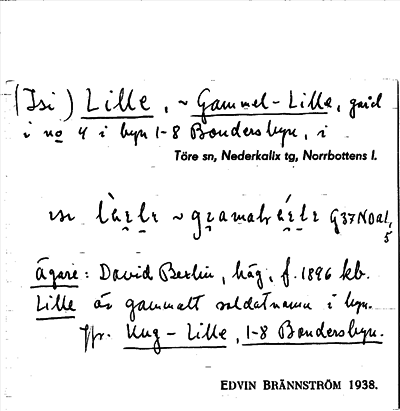 (Isi) Lille, ~ Gammel-Lille, gård
i no 4 i byn 1-8 Bondersbyn, i
Töre sn, Nederkalix tg, Norrbottens l.
Ägare: David Berlin, häg, f. 1896 kb.
Lille är gammalt soldatnamn i byn.
Jfr. Ung-Lille, 1-8 Bondersbyn.
EDVIN BRÄNNSTRÖM 1938.